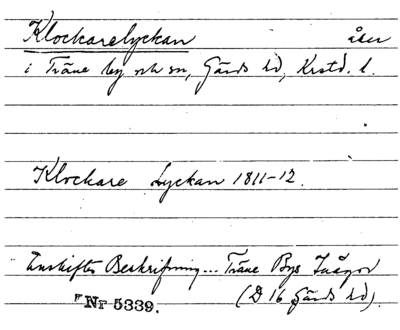 Klockarelyckan åker
i Träne by och sn, Gärds hd, Krstd. l.
Klockare Lyckan 1811-12.
Enskiftes Beskrifning... Träne Bys Inägor
Nr 5339. (D 16 Gärds hd).